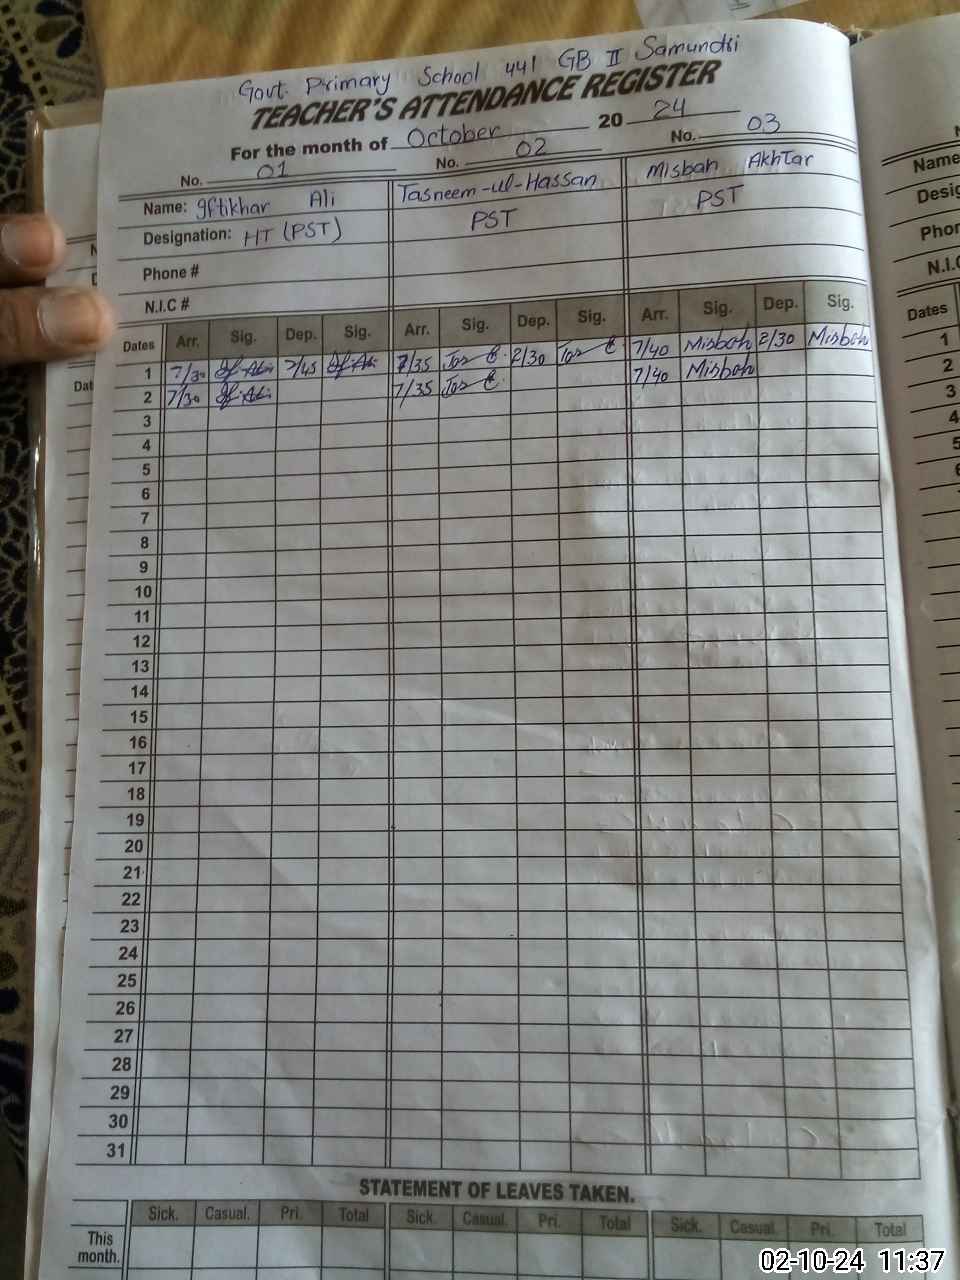 Govt. Primary School 441 GB II Samundri
TEACHER'S ATTENDANCE REGISTER
For the month of October 2024
No. 01 No. 02 No. 03
Name: Iftikhar Ali Tasneem-ul-Hassan Misbah Akhtar
Designation: HT (PST) PST PST
Phone #
N.I.C #
Dates Arr. Sig. Dep. Sig. Arr. Sig. Dep. Sig. Arr. Sig. Dep. Sig.
1 7/30 2/45 7/35 2/30 7/40 Misbah 2/30 Misbah
2 7/30 7/35 7/40 Misbah
3
4
5
6
7
8
9
10
11
12
13
14
15
16
17
18
19
20
21
22
23
24
25
26
27
28
29
30
31
STATEMENT OF LEAVES TAKEN.
Sick. Casual. Pri. Total Sick. Casual. Pri. Total Sick. Casual. Pri. Total
This
month.
Name
Desig
Phor
N.I.C
Dates
1
2
3
4
5
02-10-24 11:37